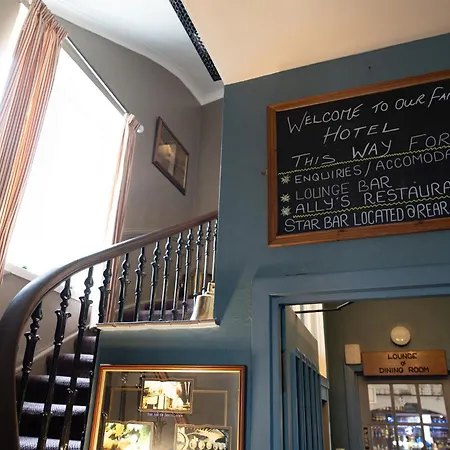 WELCOME TO OUR FAM
HOTEL
THIS WAY FOR
* ENQUIRIES/ACCOMODA
LOUNGE BAR
* ALLY'S RESTAURA
STAR BAR LOCATED @ REAR
LOUNGE &
DINING ROOM